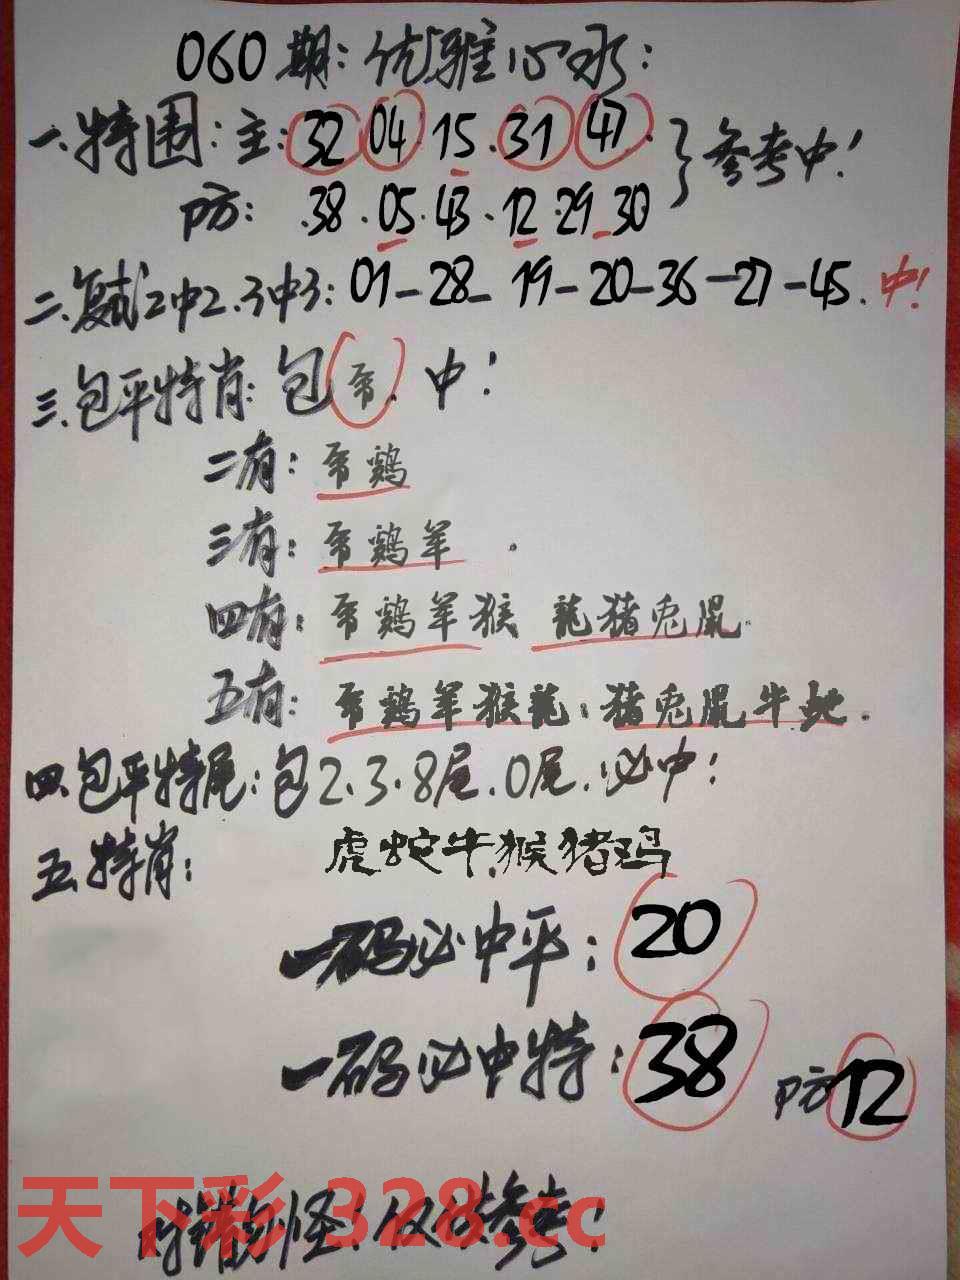 060期:优雅心水:
一.特围:主:32 04.15.31.47.
防:.38.05.43.12.29.30
}参考中!
二.复试2中2.3中3:01-28-19-20-36-27-45.中!
三.包平特肖:包.中!
二有:鸡
三有:鸡羊.
四有:鸡羊猴 龍猪兎鼠.
五有:鸡羊猴龍:猪兎鼠牛虵.
四.包平特尾:包2.3.8尾.0尾.必中!
五.特肖:虎蛇牛猴猪鸡
一码必中平:20
一码必中特:38 防12
对错勿怪!仅供参考!
天下彩 328.cc